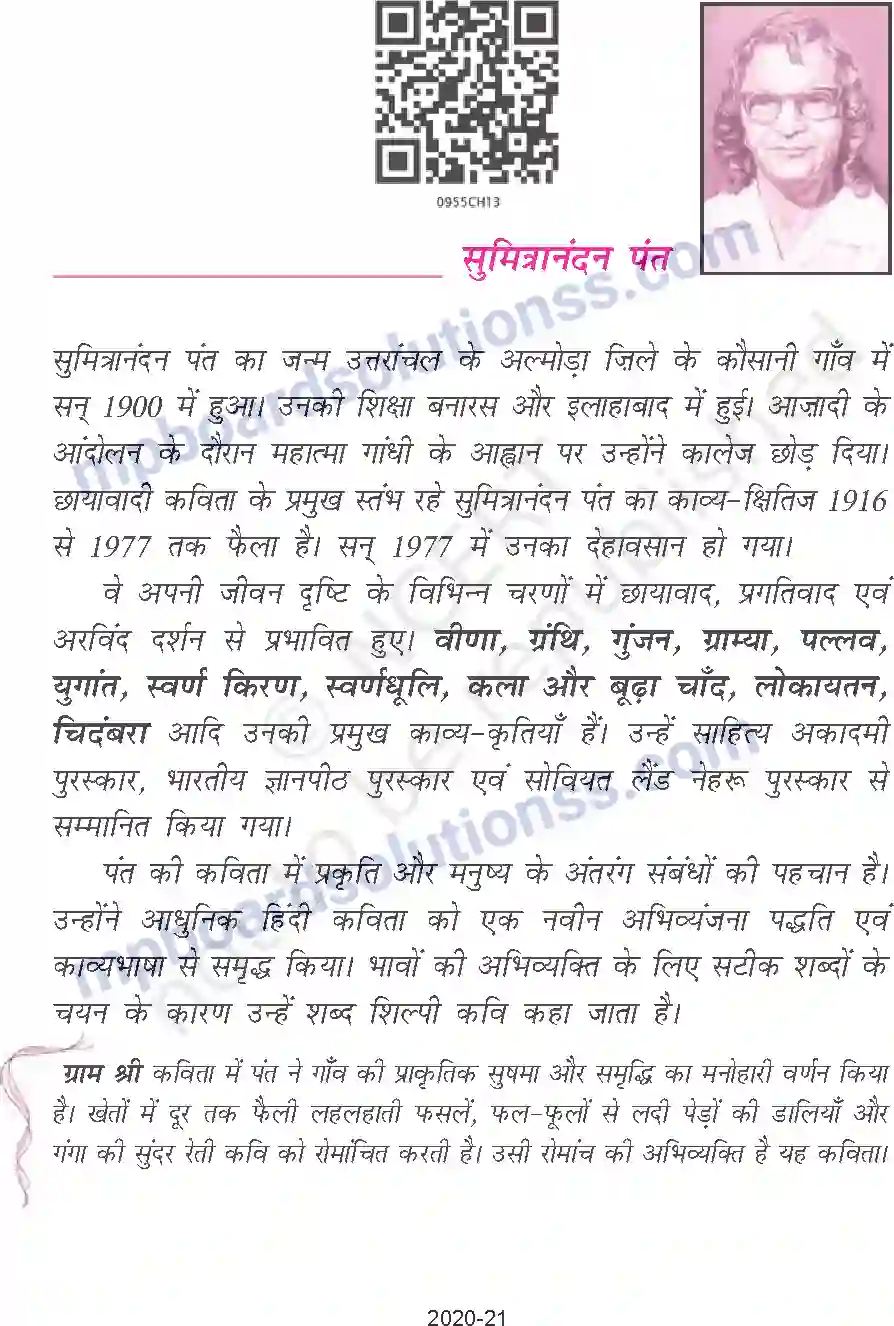 0955CH13
सुमित्रानंदन पंत
सुमित्रानंदन पंत का जन्म उत्तरांचल के अल्मोड़ा ज़िले के कौसानी गाँव में
सन् 1900 में हुआ। उनकी शिक्षा बनारस और इलाहाबाद में हुई। आज़ादी के
आंदोलन के दौरान महात्मा गांधी के आह्वान पर उन्होंने कालेज छोड़ दिया।
छायावादी कविता के प्रमुख स्तंभ रहे सुमित्रानंदन पंत का काव्य-क्षितिज 1916
से 1977 तक फैला है। सन् 1977 में उनका देहावसान हो गया।
वे अपनी जीवन दृष्टि के विभिन्न चरणों में छायावाद, प्रगतिवाद एवं
अरविंद दर्शन से प्रभावित हुए। वीणा, ग्रंथि, गुंजन, ग्राम्या, पल्लव,
युगांत, स्वर्ण किरण, स्वर्णधूलि, कला और बूढ़ा चाँद, लोकायतन,
चिदंबरा आदि उनकी प्रमुख काव्य-कृतियाँ हैं। उन्हें साहित्य अकादमी
पुरस्कार, भारतीय ज्ञानपीठ पुरस्कार एवं सोवियत लैंड नेहरू पुरस्कार से
सम्मानित किया गया।
पंत की कविता में प्रकृति और मनुष्य के अंतरंग संबंधों की पहचान है।
उन्होंने आधुनिक हिंदी कविता को एक नवीन अभिव्यंजना पद्धति एवं
काव्यभाषा से समृद्ध किया। भावों की अभिव्यक्ति के लिए सटीक शब्दों के
चयन के कारण उन्हें शब्द शिल्पी कवि कहा जाता है।
ग्राम श्री कविता में पंत ने गाँव की प्राकृतिक सुषमा और समृद्धि का मनोहारी वर्णन किया
है। खेतों में दूर तक फैली लहलहाती फसलें, फल-फूलों से लदी पेड़ों की डालियाँ और
गंगा की सुंदर रेती कवि को रोमांचित करती है। उसी रोमांच की अभिव्यक्ति है यह कविता।
2020-21
mpboardsolutionss.com
mpboardsolutionss.com
© NCERT
not to be republished